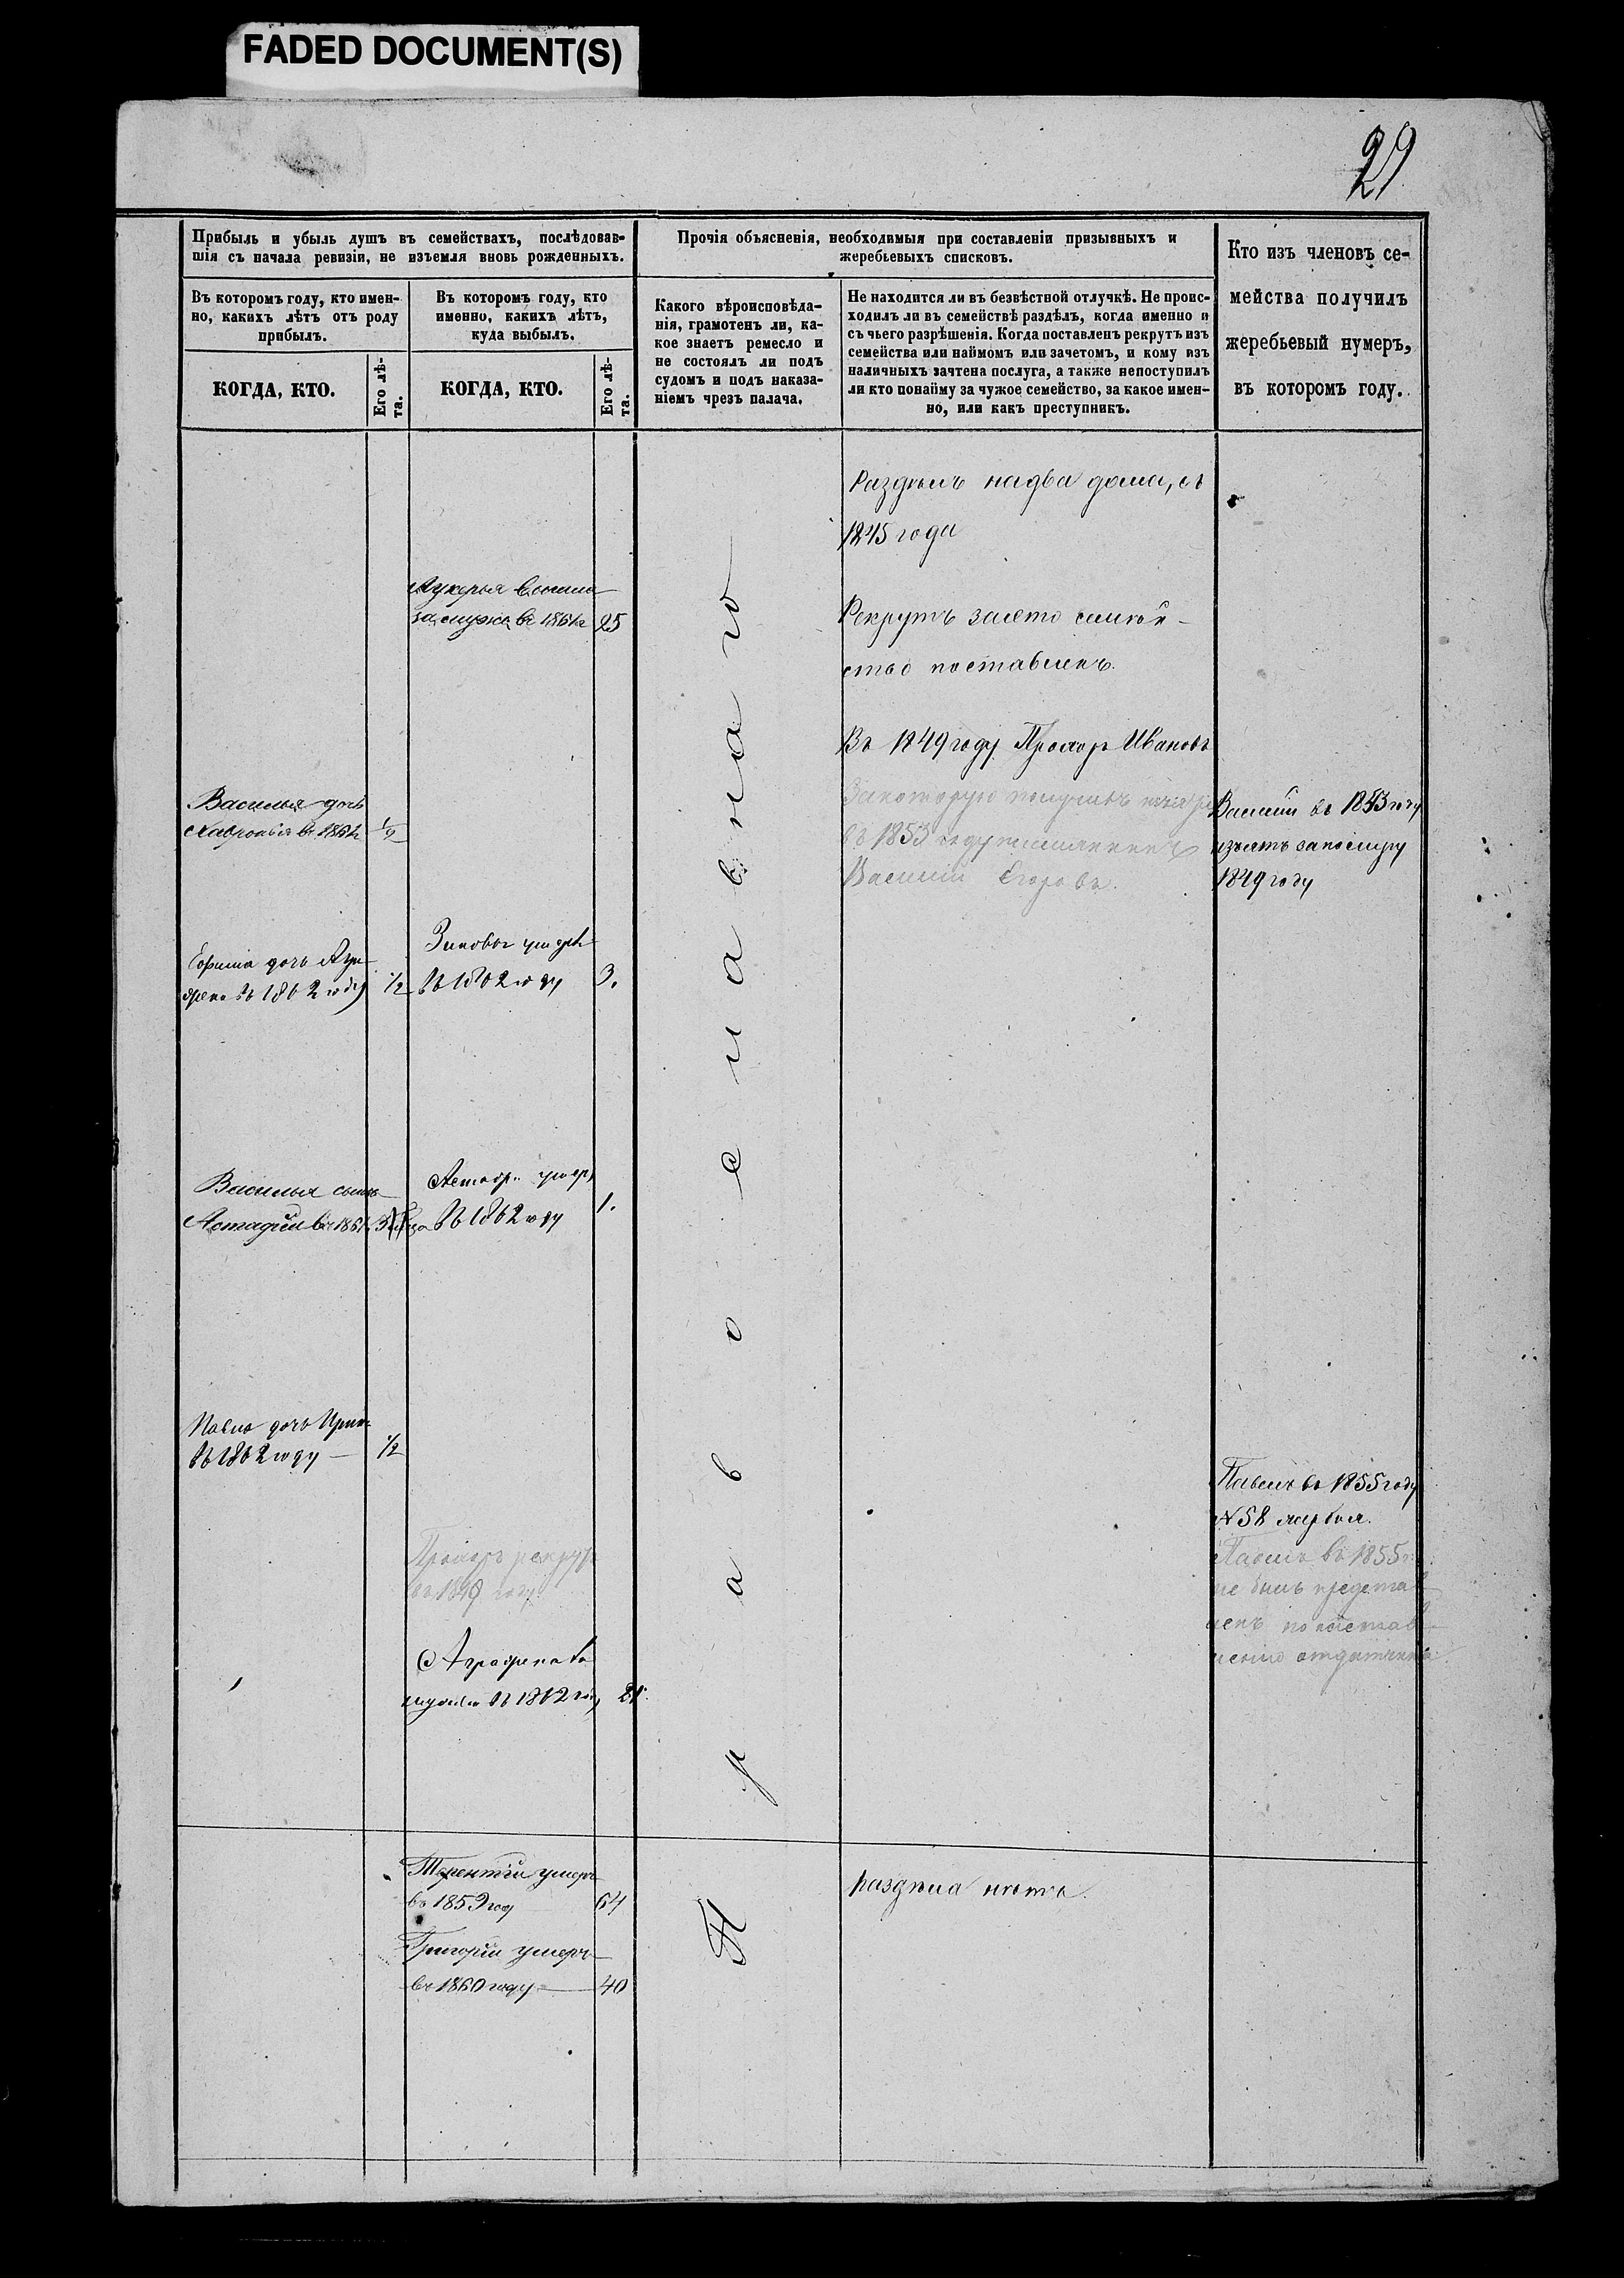 FADED DOCUMENT(S)
29
Прибыль и убыль душъ въ семействахъ, послѣдовав-
шія съ начала ревизіи, не изъемля вновь рожденныхъ.
Въ которомъ году, кто имен-
но, какихъ лѣтъ отъ роду
прибылъ.
КОГДА, КТО.
Его лѣ-
та.
Въ которомъ году, кто
именно, какихъ лѣтъ,
куда выбылъ.
КОГДА, КТО.
Его лѣ-
та.
Прочія объясненія, необходимыя при составленіи призывныхъ и
жеребьевыхъ списковъ.
Какого вѣроисповѣда-
нія, грамотенъ ли, ка-
кое знаетъ ремесло и
не состоялъ ли подъ
судомъ и подъ наказа-
ніемъ чрезъ палача.
Не находится ли въ безвѣстной отлучкѣ. Не проис-
ходилъ ли въ семействѣ раздѣлъ, когда именно и
съ чьего разрѣшенія. Когда поставленъ рекрутъ изъ
семейства или наймомъ или зачетомъ, и кому изъ
наличныхъ зачтена послуга, а также непоступилъ
ли кто понайму за чужое семейство, за какое имен-
но, или какъ преступникъ.
Кто изъ членовъ се-
мейства получилъ
жеребьевый нумеръ,
въ которомъ году.
Раздѣлъ надва дома, съ
1845 года
Лукерья
замужъ въ 1861 25
Рекрутъ
ство поставленъ.
Въ 1849 году Прохоръ Ивановъ
Закоторую получилъ
въ 1853 году
Василій Егоровъ.
Василья дочь
въ 1861 1/2
Василій въ 1853 году
1849 году
дочь
въ 1862 году 1/2
умеръ
въ 1862 году 3.
Василья сынъ
Астафій въ 1861 3
Астафій умеръ
въ 1862 году 1.
Павла дочь
въ 1862 году 1/2
Павелъ въ 1855 году
№ 58
Павелъ въ 1855
не былъ представ
ленъ
Прохоръ рекрутъ
въ 1849 году
Аграфена
въ 1862 21
Терентій умеръ
въ 1859 год 64
Григорій умеръ
въ 1860 году 40
раздѣла нѣтъ.
Православнаго